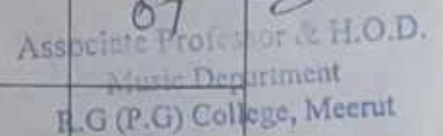 07
Associate Professor & H.O.D.
Music Department
R.G (P.G) College, Meerut